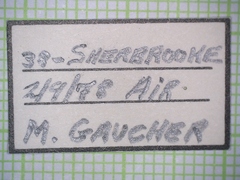 38-SHERBROOKE
2/9/78 AIR.
M. GAUCHER